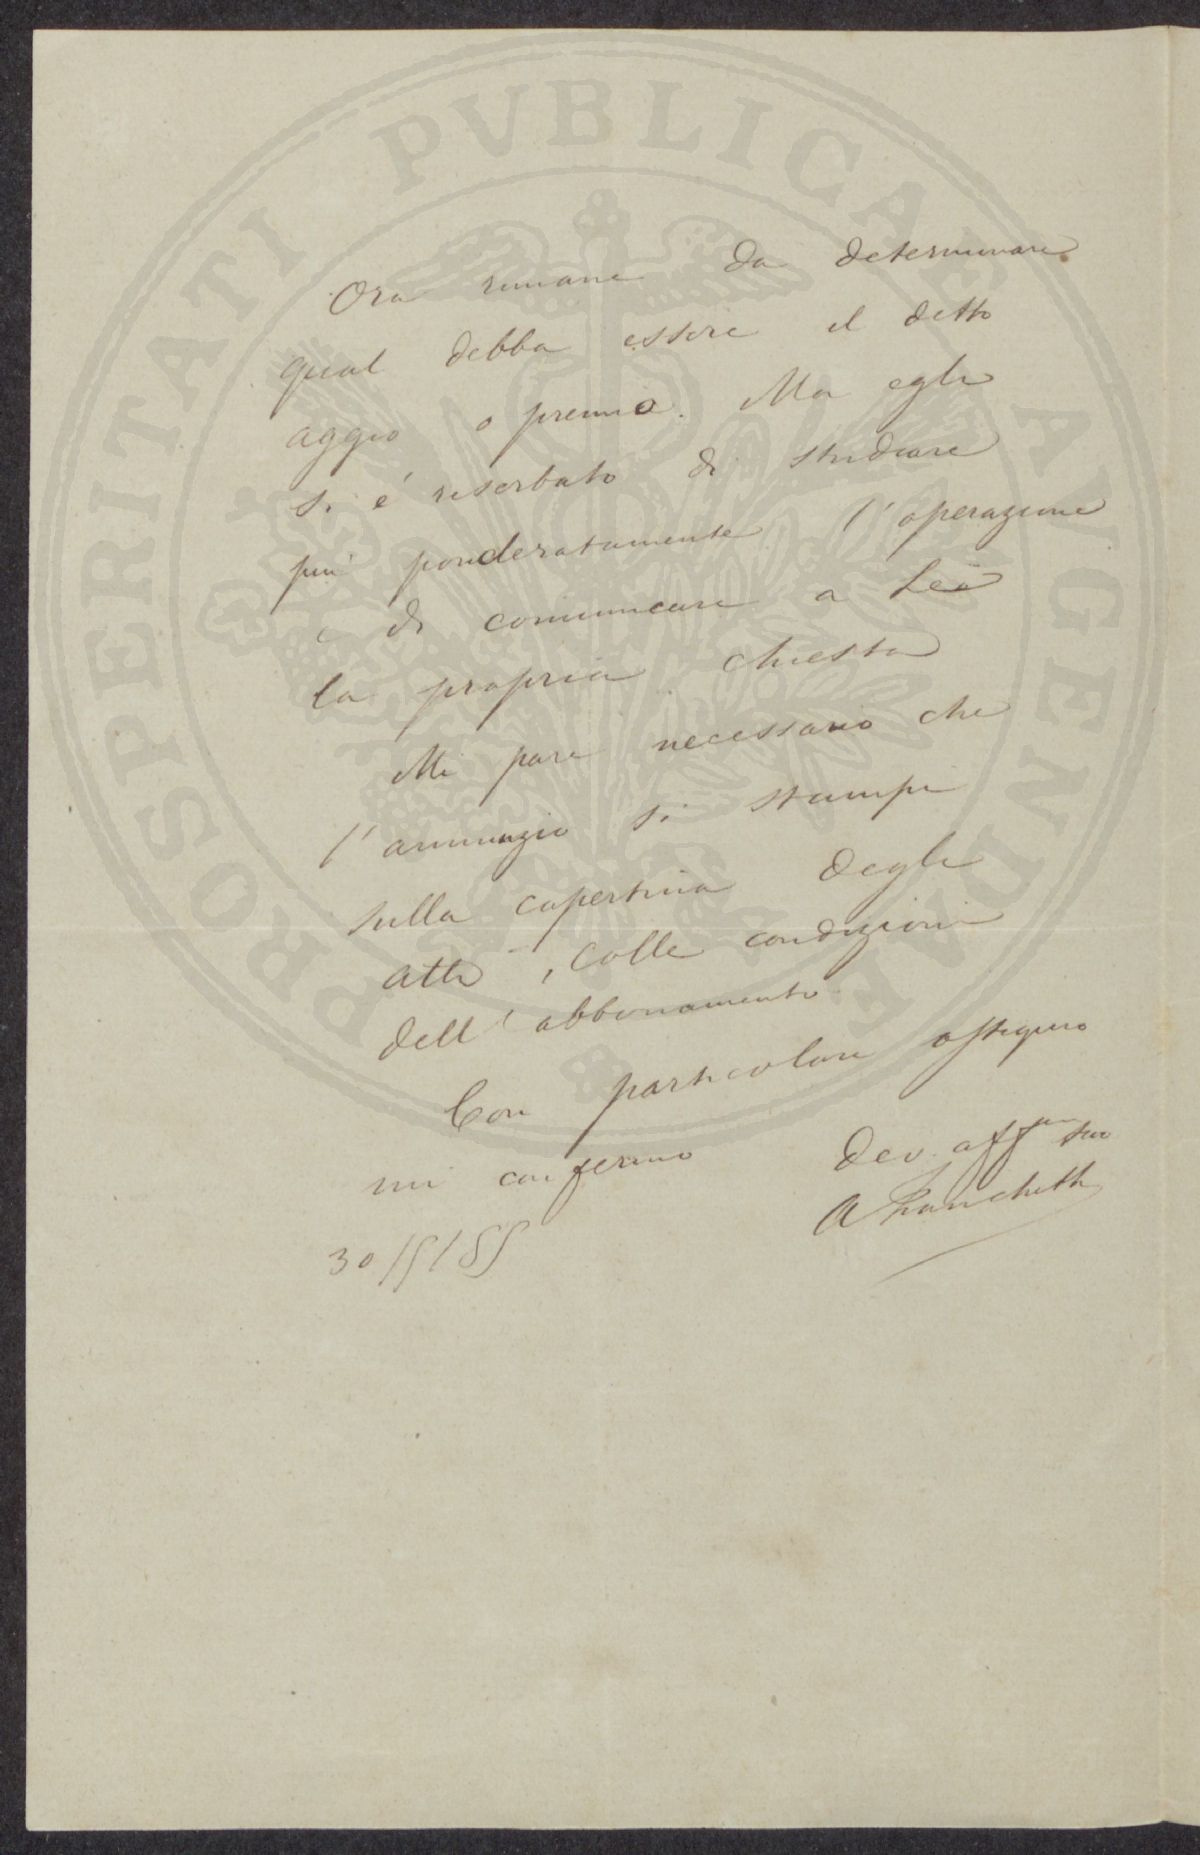 PROSPERITATI PVBLICAE AVGENDAE
Ora rimane da determinare
qual debba essere il detto
aggio o premio. Ma egli
si é riserbato di studiare
più ponderatamente l'operazione
e di comunicare a Lei
la propria chiesta
Mi pare necessario che
l'annunzio si stampi
sulla copertina degli
atti, colle condizioni
dell'abbonamento.
Con particolare ossequio
mi confermo
Dev. aff suo
A
30/5/85